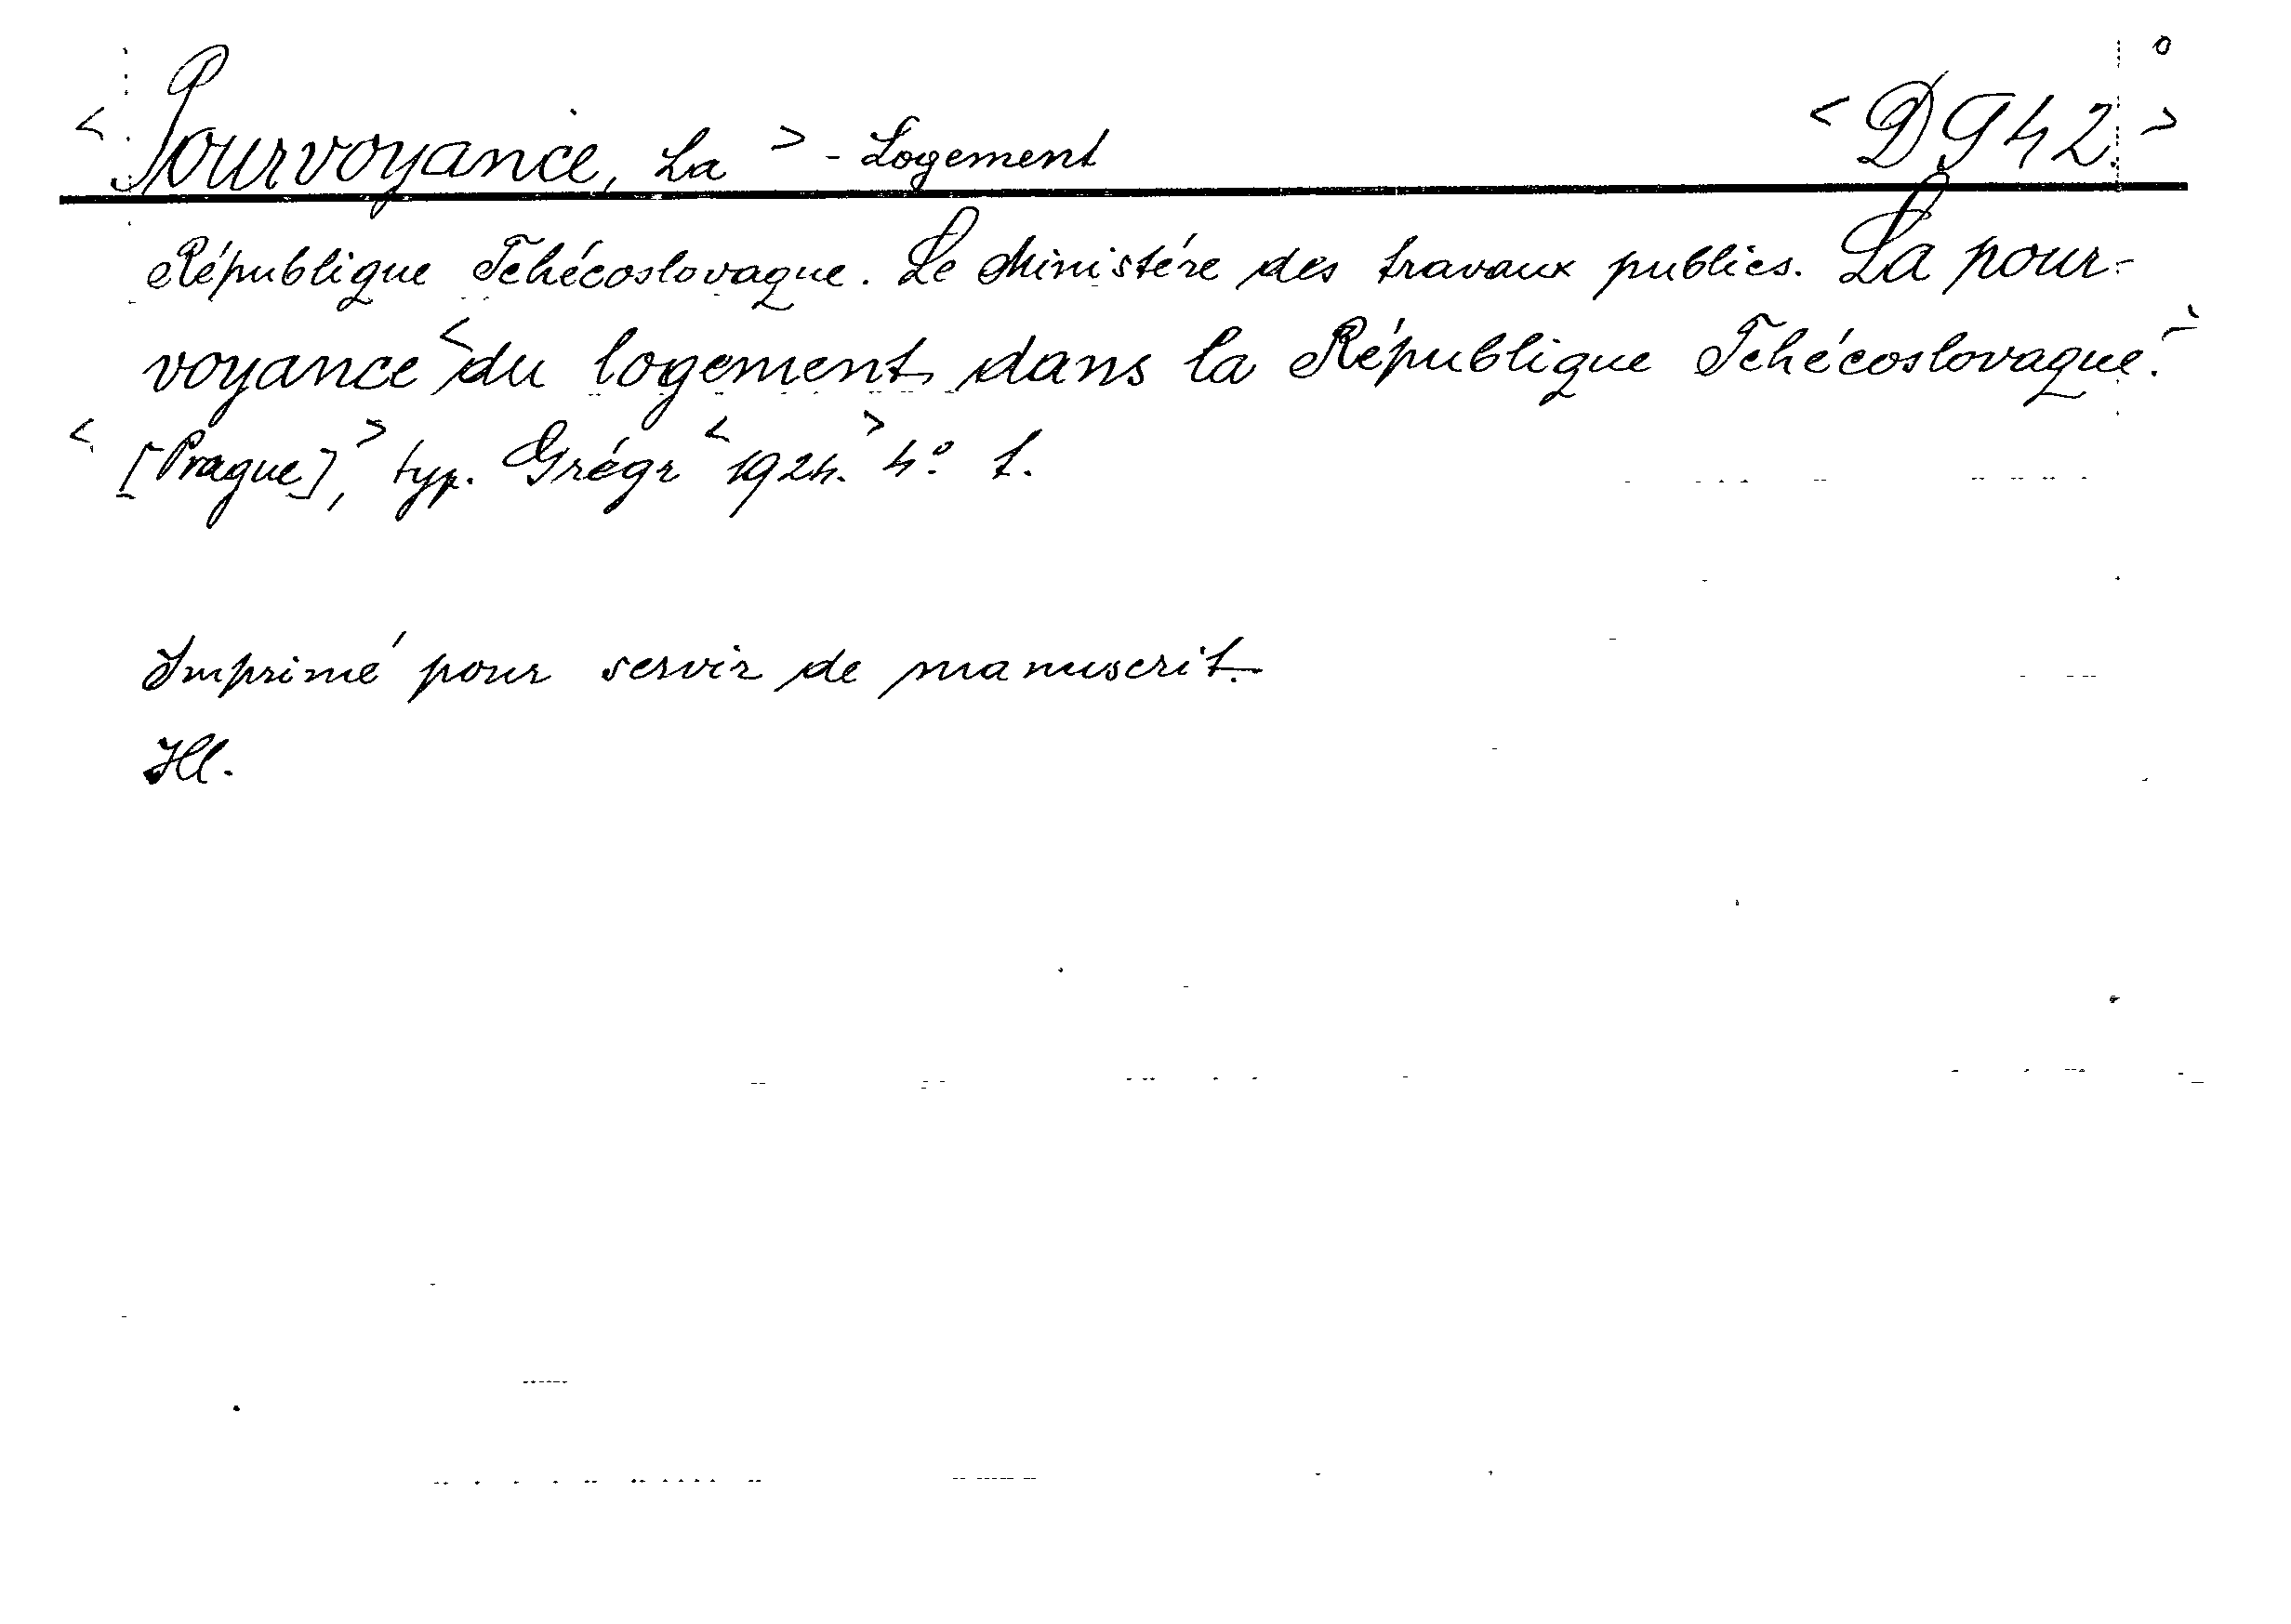 < Pourvoyance, La > - Logement < D 942. >
République Tchécoslovaque. Le Ministére des travaux publics. La pour-
voyance < du logement dans la République Tchécoslovaque. >
< [Prague], > typ. Grégr < 1924. > 4° 1.
Imprimé pour servir de manuscrit.
Ill.